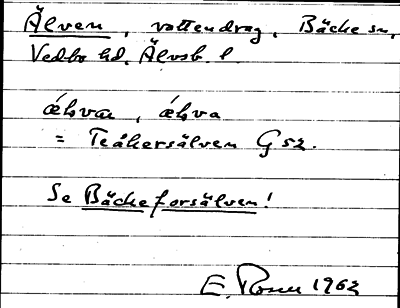 Älven, vattendrag, Bäcke sn,
Vedbo hd. Älvsb. l.
ǽlvæ, ǽlva
= Teåkersälven G 52.
Se Bäckeforsälven!
E. Rosén 1962